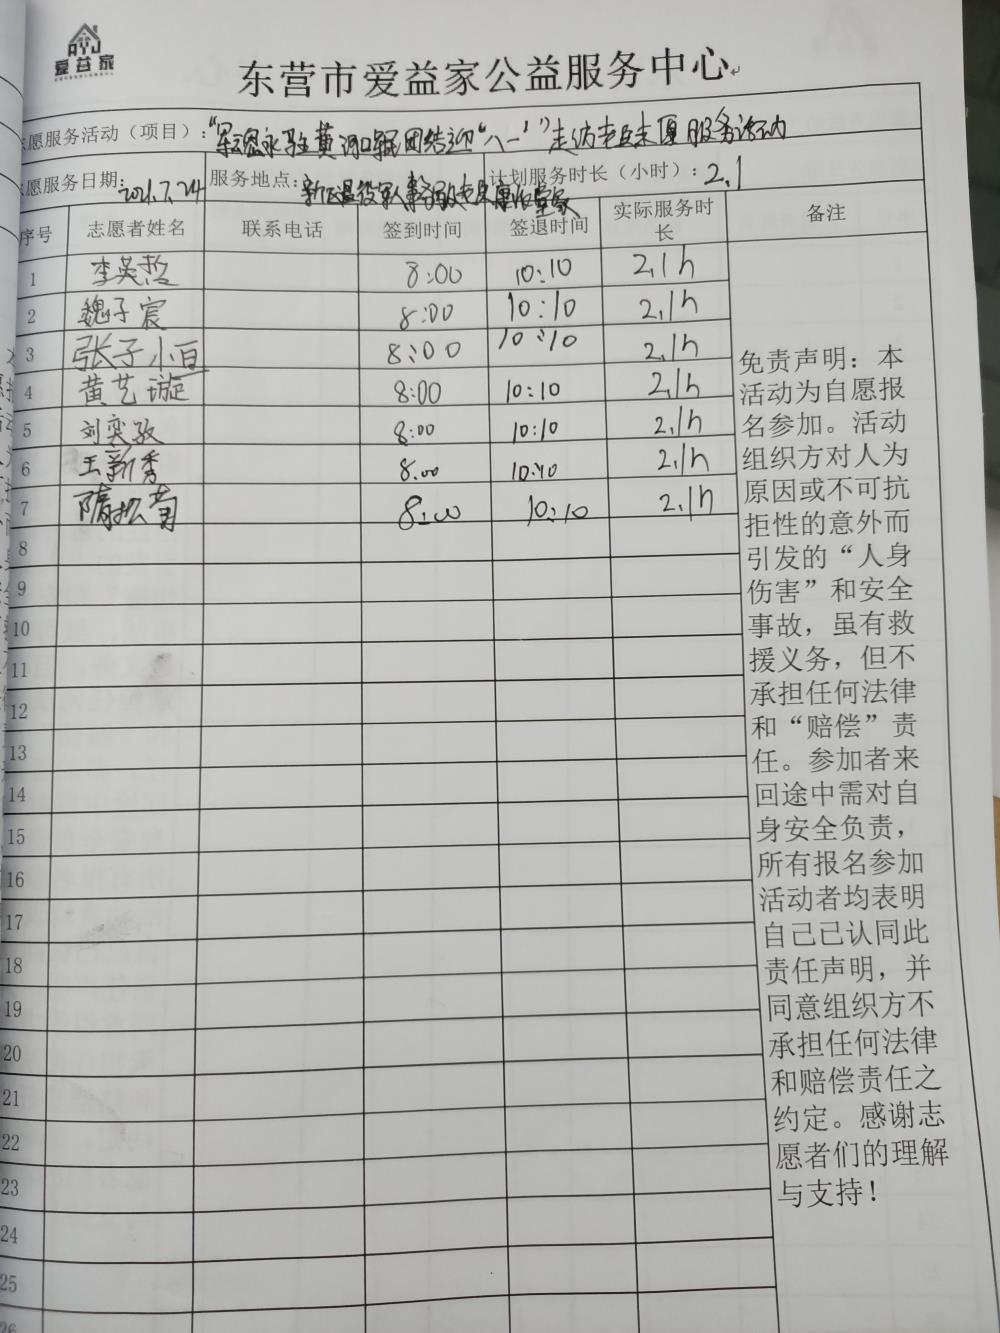 AYJ
爱益家
东营市爱益家公益服务中心
志愿服务活动（项目）：“军恩永驻黄河口军民团结迎“八一””走访老兵志愿服务活动
志愿服务日期：2021.7.24 服务地点： 计划服务时长（小时）：2.1
序号 志愿者姓名 联系电话 签到时间 签退时间 实际服务时长 备注
1 李英哲 8:00 10:10 2.1h
2 魏子宸 8:00 10:10 2.1h
3 张子小百 8:00 10:10 2.1h
4 黄艺璇 8:00 10:10 2.1h
5 刘奕孜 8:00 10:10 2.1h
6 王新秀 8.00 10:10 2.1h
7 隋松菊 8:00 10:10 2.1h
8
9
10
11
12
13
14
15
16
17
18
19
20
21
22
23
24
25
26
免责声明：本
活动为自愿报
名参加。活动
组织方对人为
原因或不可抗
拒性的意外而
引发的“人身
伤害”和安全
事故，虽有救
援义务，但不
承担任何法律
和“赔偿”责
任。参加者来
回途中需对自
身安全负责，
所有报名参加
活动者均表明
自己已认同此
责任声明，并
同意组织方不
承担任何法律
和赔偿责任之
约定。感谢志
愿者们的理解
与支持！